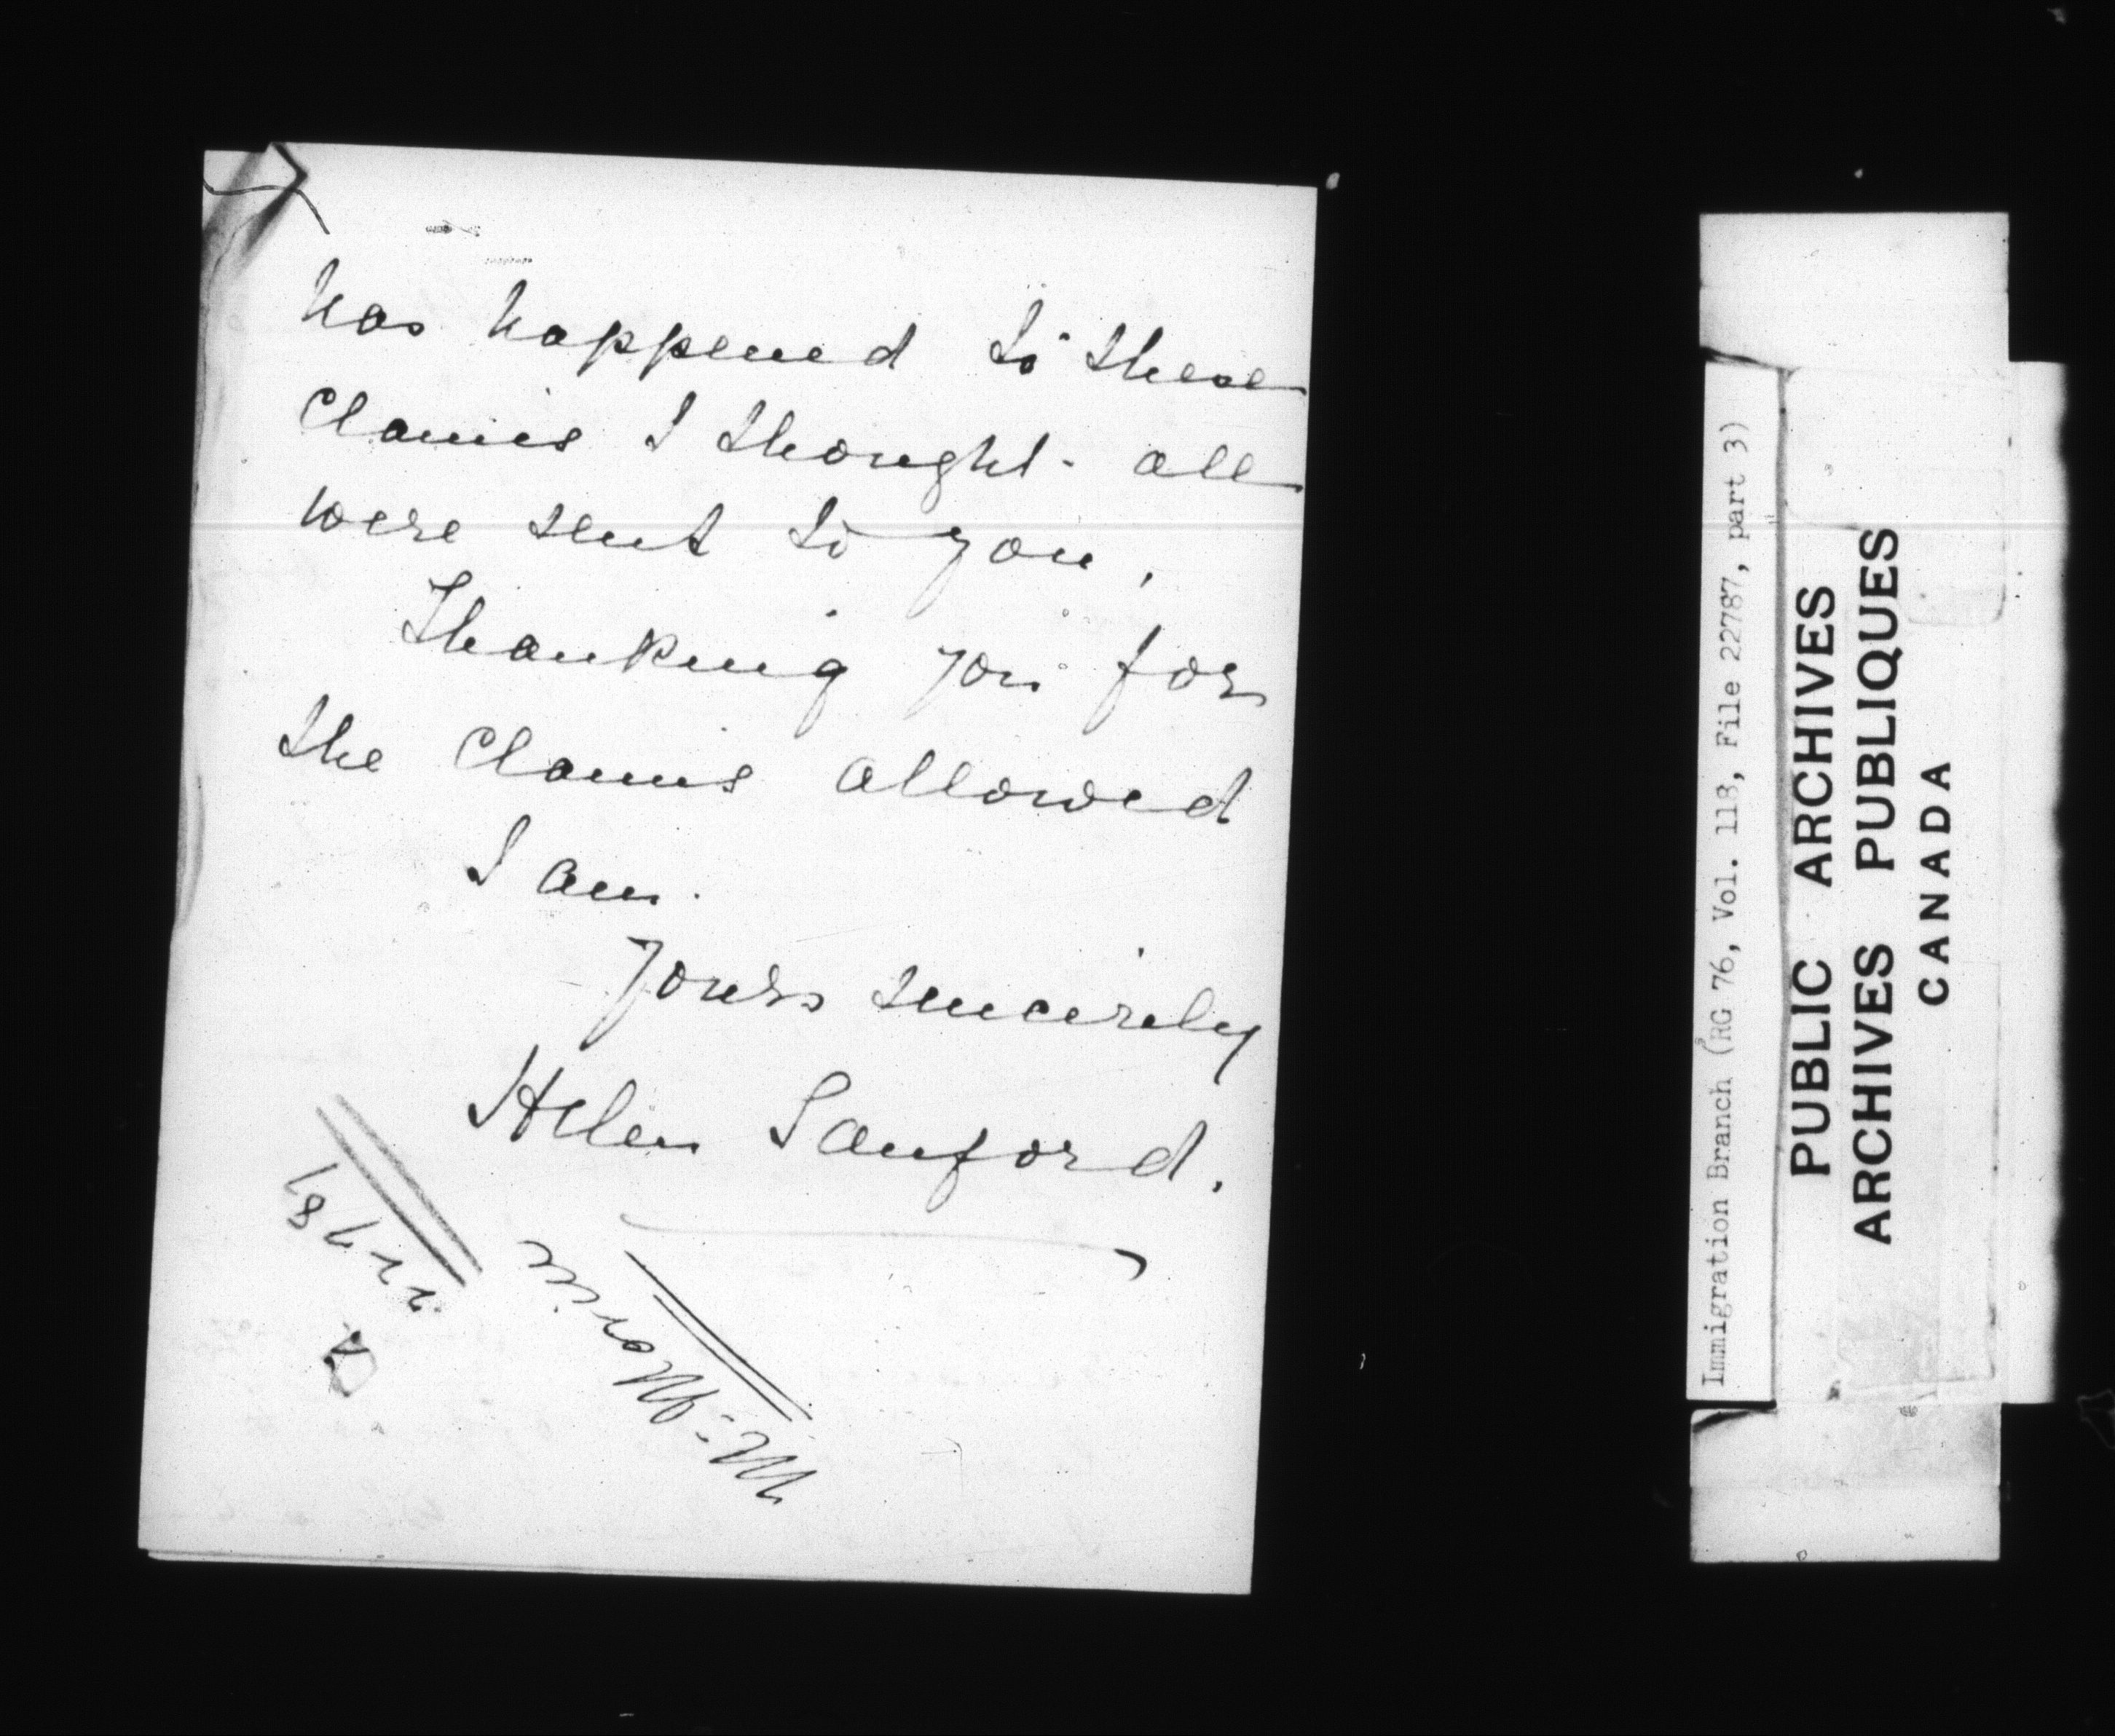 has happened to these
Claims I thought - all
were sent to you,
Thanking you for
the Claims allowed
I am.
Yours sincerely
Helen Sanford.
22787
Immigration Branch (RG 76, Vol. 118, File 22787, part 3)
PUBLIC ARCHIVES
ARCHIVES PUBLIQUES
CANADA